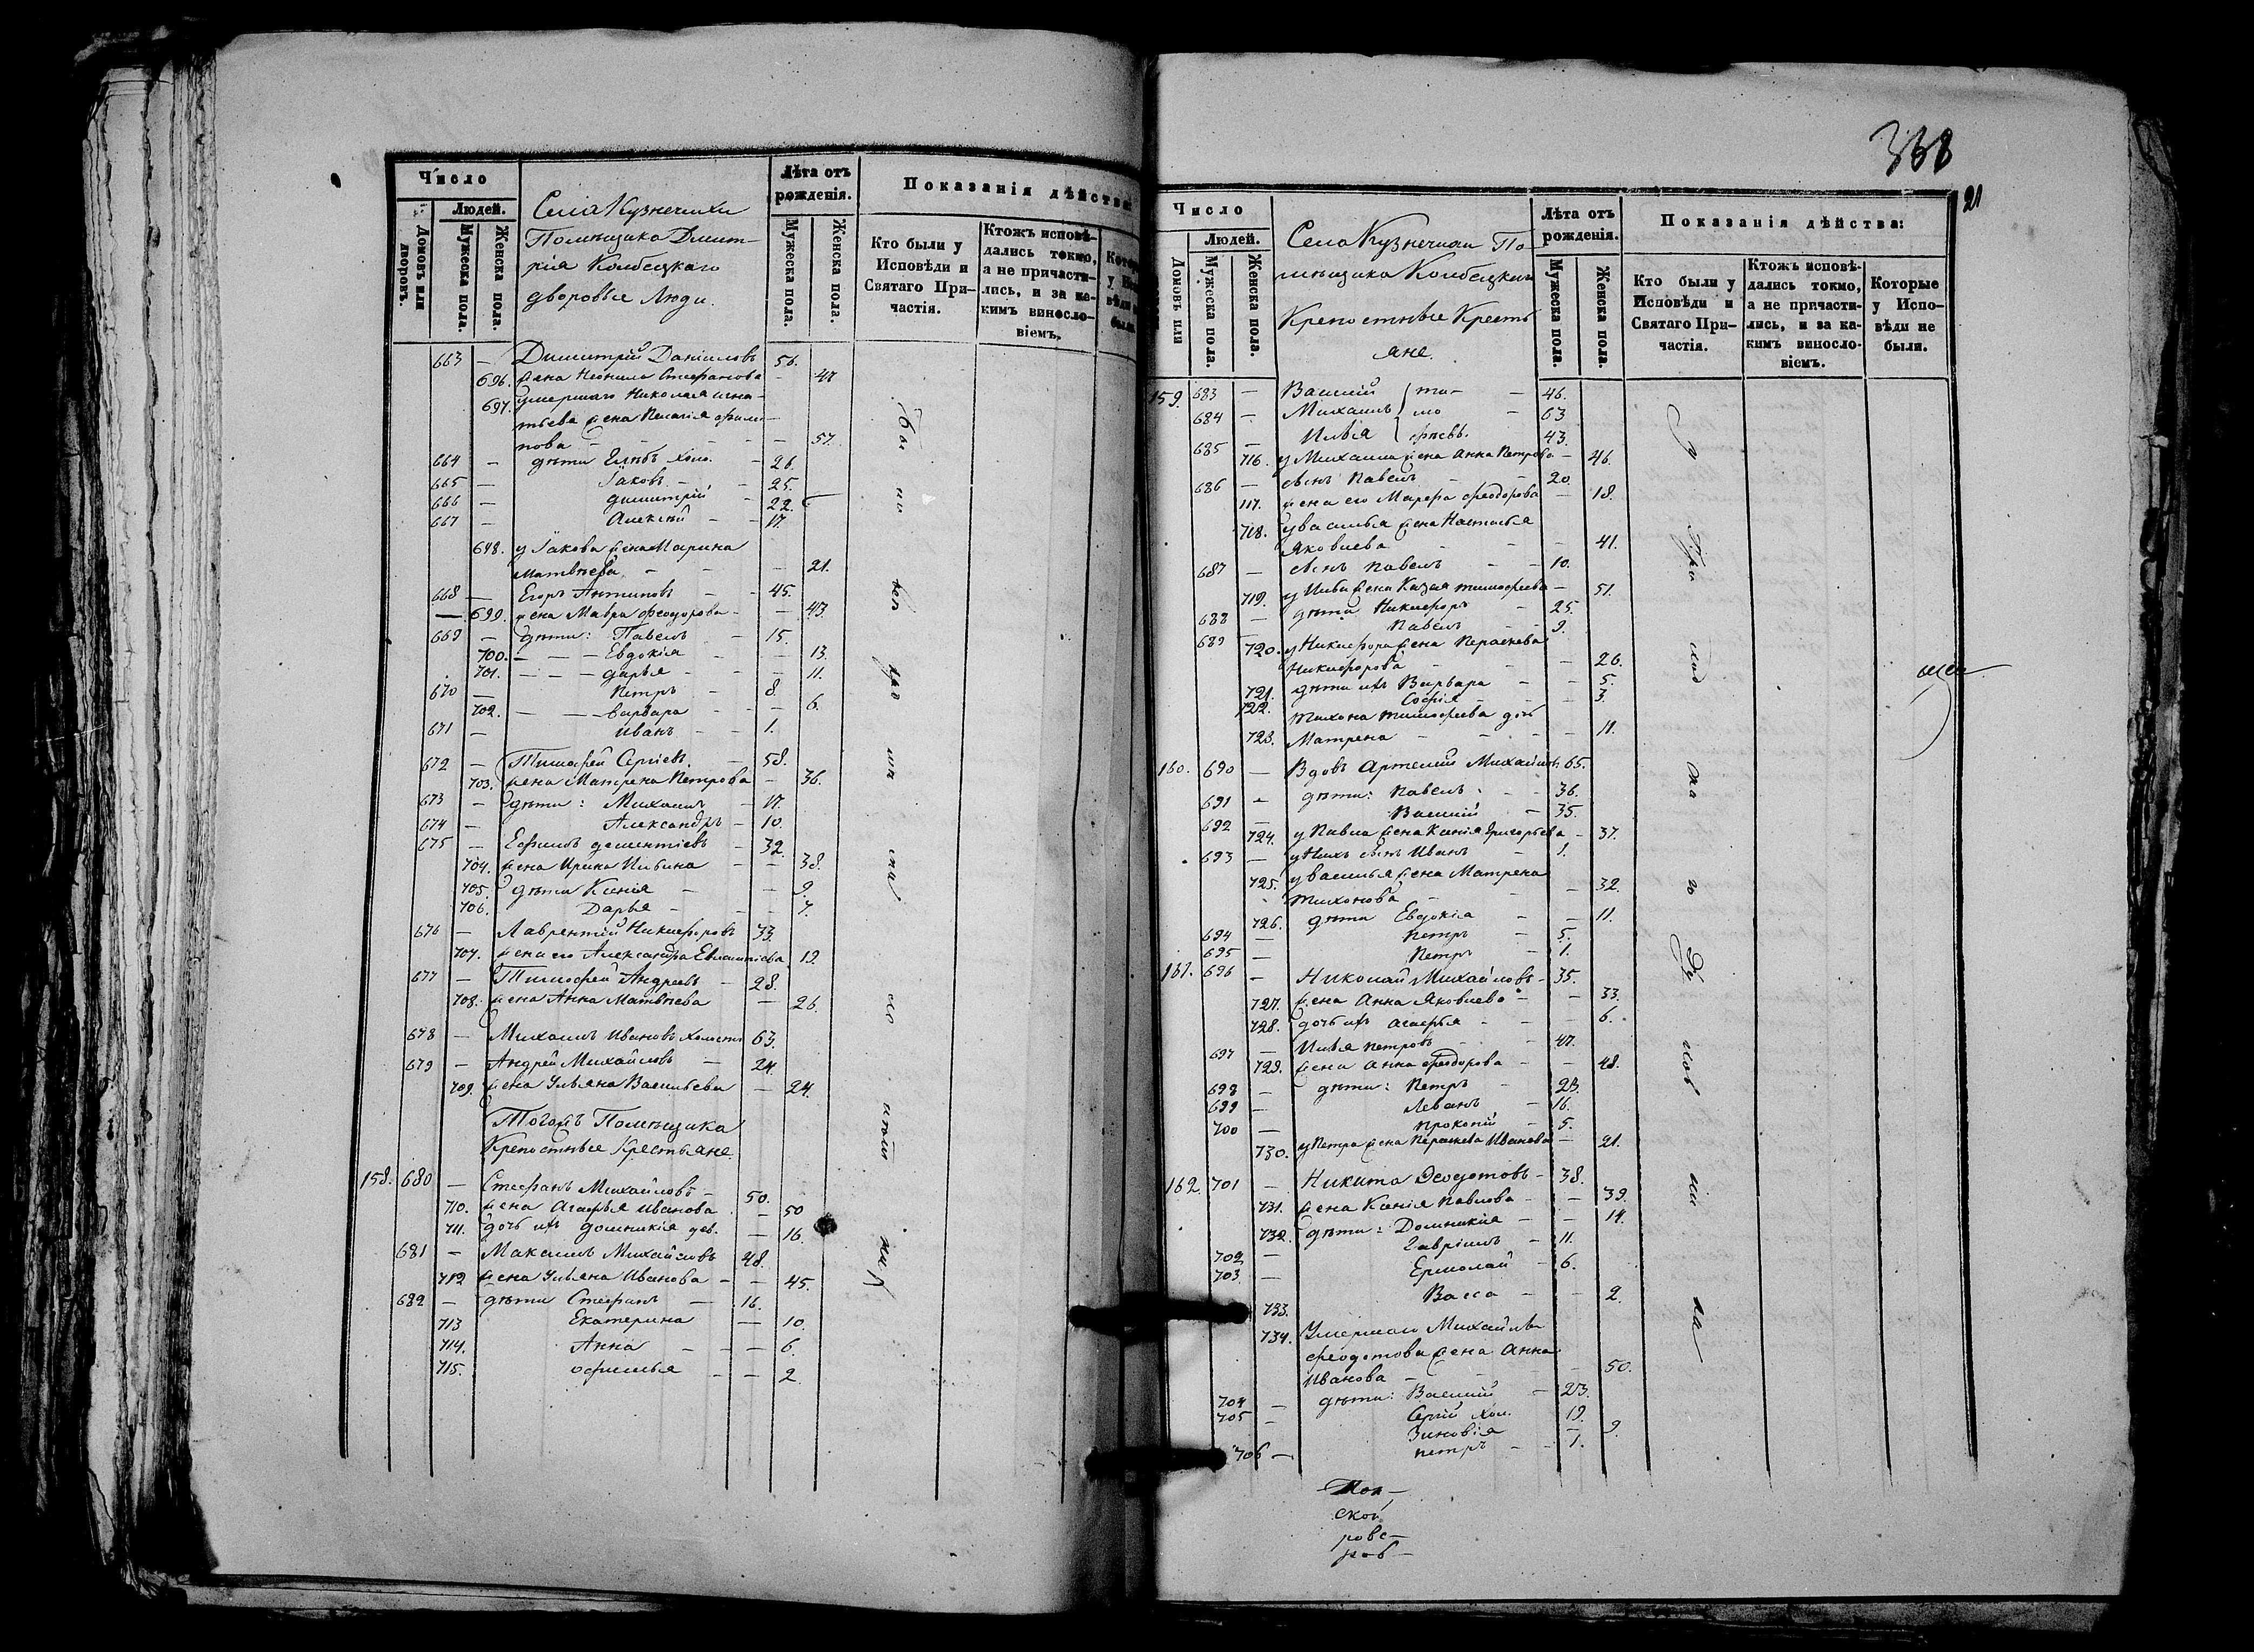 Число
Людей.
Домовъ или дворовъ.
Мужеска пола.
Женска пола.
Села Кузнечихи
Помѣщика Димит-
рія
дворовые Люди.
Лѣта отъ рожденія.
Мужеска пола.
Женска пола.
Показанія дѣйства:
Кто были у Исповѣди и Святаго При-частія.
Ктожъ исповѣ-дались токмо, а не причасти-лись, и за ка-кимъ винословіемъ.
663 — Димитрій Даніиловъ 56.
696. жена Неонила Стефанова — 47
697. умершаго Николая Игна-
тьева жена Пелагія Филип-
пова — 57.
664 — дѣти Глѣбъ холо. — 26.
665 — Іаковъ — 25.
666 — Димитрій 22.
667 — Алексѣй — 17.
698. у Іакова жена Марина
Матвѣева — 21.
668 — Егоръ Антиповъ — 45.
699. жена Мавра Феодорова — 43.
669 — дѣти: Павелъ — 15.
700. — Евдокія — 13.
701. — Дарья — 11.
670 — Петръ — 8.
702. — Варвара — 6.
671 — Иванъ — 1.
672 — Тимофей Сергіевъ. — 58.
703. жена Матрена Петрова — 36.
673 — дѣти: Михаилъ — 17.
674 — Александръ — 10.
675 — Ефимъ Дементіевъ — 32.
704. жена Ирина Ильина — 38.
705. дѣти Ксенія — 9.
706. Дарья — 7.
676 — Лаврентій Никифоровъ 33.
707. жена его Александра 19.
677 — Тимофей Андреевъ — 28.
708. жена Анна Матвѣева — 26.
678 — Михаилъ Ивановъ холостъ 63.
679 — Андрей Михайловъ — 24.
709. жена Ульяна Васильева — 24.
Тогожъ Помѣщика
Крепостные Крестьяне.
158. 680 — Стефанъ Михайловъ — 50.
710. жена Агафья Иванова — 50
711. дочь ихъ Домникія дев. — 16.
681 — Максимъ Михайловъ 48.
712 жена Ульяна Иванова — 45.
682 — дѣти Стефанъ — 16.
713 Екатерина — 10.
714. Анна — 6.
715. Офимья — 2.
21
Число
Людей.
Домовъ или
Мужеска пола.
Женска пола.
Села Кузнечихи По-
мѣщика
Крепостные Кресть
яне.
Лѣта отъ рожденія.
Мужеска пола.
Женска пола.
Показанія дѣйства:
Кто были у Исповѣди и Святаго При-частія.
Ктожъ исповѣ-дались токмо, а не причасти-лись, и за ка-кимъ винословіемъ.
Которые у Испо-вѣди не были.
159. 683 — Василій ти- — 46.
684 — Михаилъ мо — 63
685 — Илья феевы. 43.
716. у Михаила жена Анна Петрова — 46.
686 — сынъ Павелъ — 20
717. жена его Марфа Феодорова — 18.
718. у Василья жена Настасья
Яковлева — 41.
687 — сынъ Павелъ — 10.
719. у Ильи жена Тимофеева — 51.
688 — дѣти Никифоръ — 25.
689 Павелъ — 9.
720. у Никифора жена Параскева
Никифорова — 26.
721. дѣти ихъ Варвара — 5.
722. Софія — 3.
Тихона Тимофеева дочь
723. Матрена — 11.
160. 690 — Вдовъ Артемій Михайловъ 65.
691 — дѣти: Павелъ — 36.
692 — Василій — 35.
724. у Павла жена Ксенія Григорьева — 37.
693 — у Нихъ сынъ Иванъ — 1.
725. у Василья жена Матрена
Тихонова — 32.
726. дѣти Евдокія — 11.
694 — Петръ — 5.
695 — Петръ — 1.
161. 696 — Николай Михайловъ — 35.
727. жена Анна Яковлева — 33.
728. дочь ихъ Агафья — 6.
697 — Илья Петровъ — 47.
729. жена Анна Феодорова — 48.
698 — дѣти: Петръ — 23.
699 — Леванъ — 16.
700 — Прокопій — 5.
730. у Петра жена Параскева Иванова — 21.
162. 701 — Никита Феодотовъ — 38.
731. жена Ксенія Павлова — 39.
732. дѣти: Домникія — 14.
702 — Гавріилъ — 11.
703 — Ермолай — 6.
733. Васса — 2.
734. Умершаго Михаила
Феодотова жена Анна
Иванова — 50.
704 — дѣти: Василій — 23.
705 — Сергій хол. 19.
Зиновія — 9.
706 — Петръ — 1.